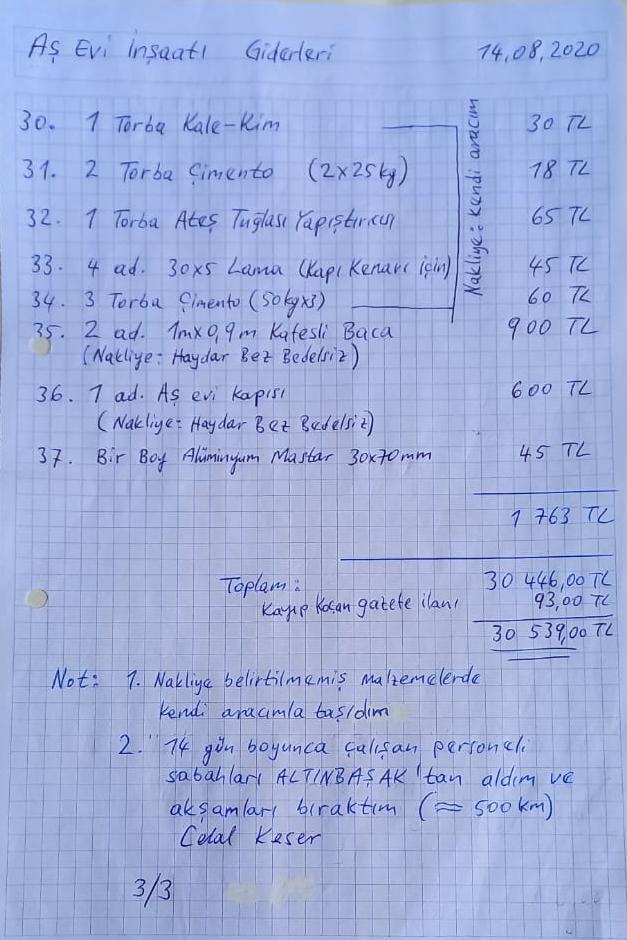 Aş Evi İnşaatı Giderleri 14,08,2020
30. 1 Torba Kale-Kim 30 TL
31. 2 Torba Çimento (2x25kg) 18 TL
32. 1 Torba Ateş Tuğlası Yapıştırıcısı 65 TL
33. 4 ad. 30x5 Lama (Kapı Kenarı için) 45 TL
34. 3 Torba Çimento (50kgx3) 60 TL
Nakliye: Kendi aracım
35. 2 ad. 1mx0,9m Kafesli Baca 900 TL
(Nakliye: Haydar Bez Bedelsiz)
36. 1 ad. Aş evi kapısı 600 TL
(Nakliye: Haydar Bez Bedelsiz)
37. Bir Boy Alüminyum Mastar 30x70mm 45 TL
1 763 TL
Toplam: 30 446,00 TL
Kayıp Koçan gazete ilanı 93,00 TL
30 539,00 TL
Not: 1. Nakliye belirtilmemiş malzemelerde
kendi aracımla taşıdım
2. 14 gün boyunca çalışan personeli
sabahları ALTINBAŞAK'tan aldım ve
akşamları bıraktım (≈ 500 km)
Celal Keser
3/3